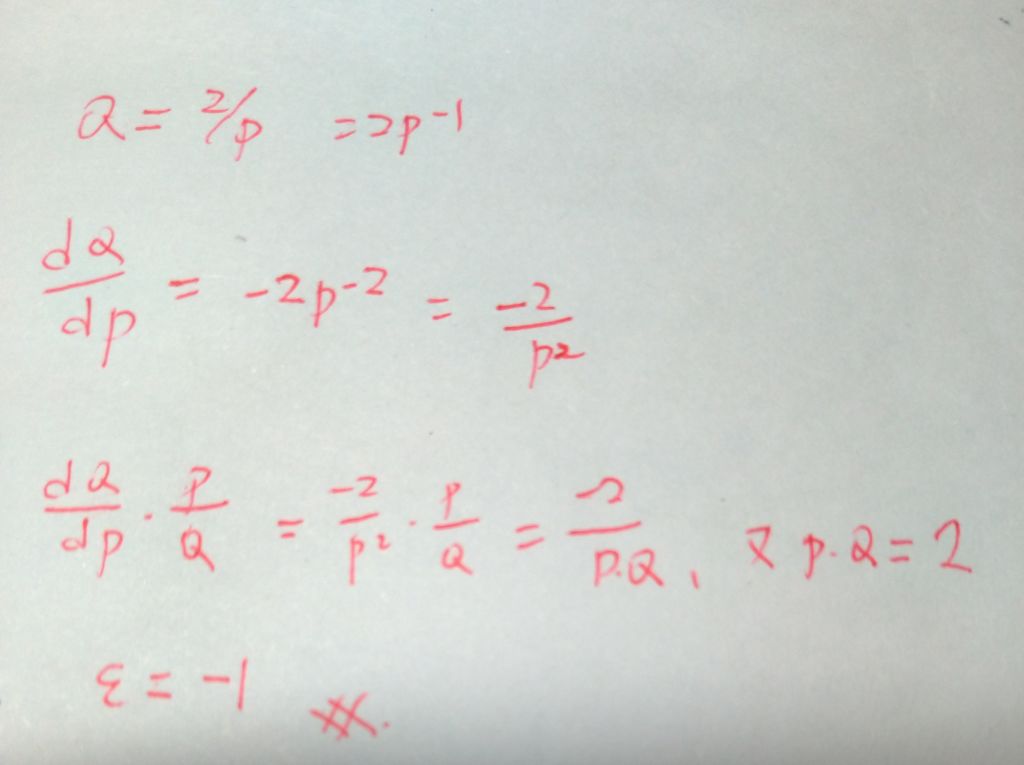 Q = 2/p = 2p⁻¹
dQ/dp = -2p⁻² = -2/p²
dQ/dp · P/Q = -2/p² · P/Q = -2/P·Q, 又 p·Q = 2
ε = -1 ※.